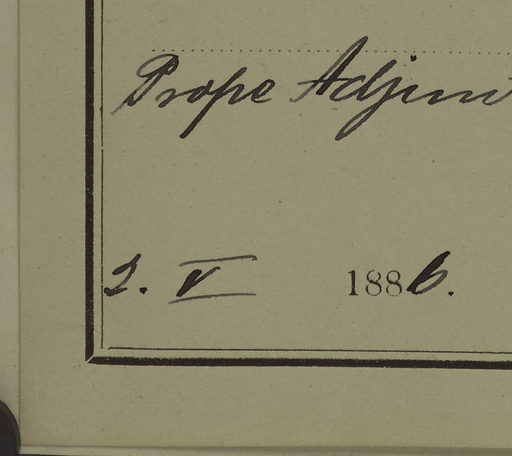 Prope Adjun
2. V 1886.